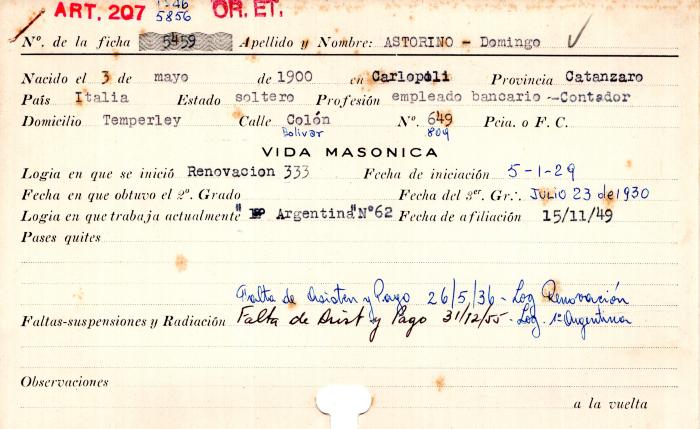 ART. 207 5856 OR. ET.
Nº. de la ficha 5459 Apellido y Nombre: ASTORINO - Domingo
Nacido el 3 de mayo de 1900 en Carlopoli Provincia Catanzaro
País Italia Estado soltero Profesión empleado bancario --Contador
Domicilio Temperley Calle Colón Nº. 649 Pcia. o F. C.
Bolivar 809
VIDA MASONICA
Logia en que se inició Renovacion 333 Fecha de iniciación 5-1-29
Fecha en que obtuvo el 2º. Grado Fecha del 3er. Gr∴. JULIO 23 de 1930
Logia en que trabaja actualmente " Argentina" Nº62 Fecha de afiliación 15/11/49
Pases quites
Falta de Asisten y Pago 26/5/36 - Log Renovación
Faltas-suspensiones y Radiación Falta de Asist y Pago 31/12/55 - Log. 1ª Argentina
Observaciones
a la vuelta